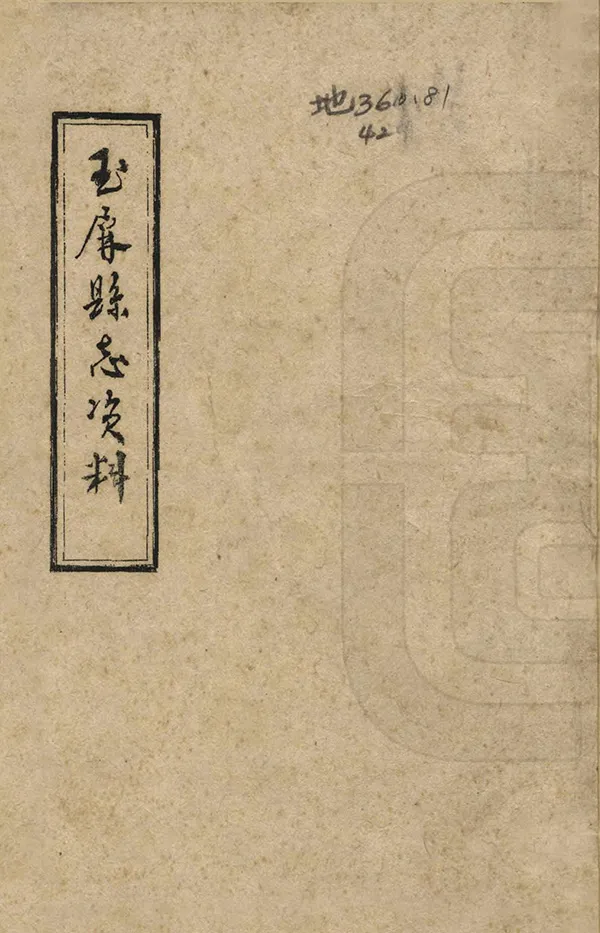 玉屏縣志资料
地360.81
42